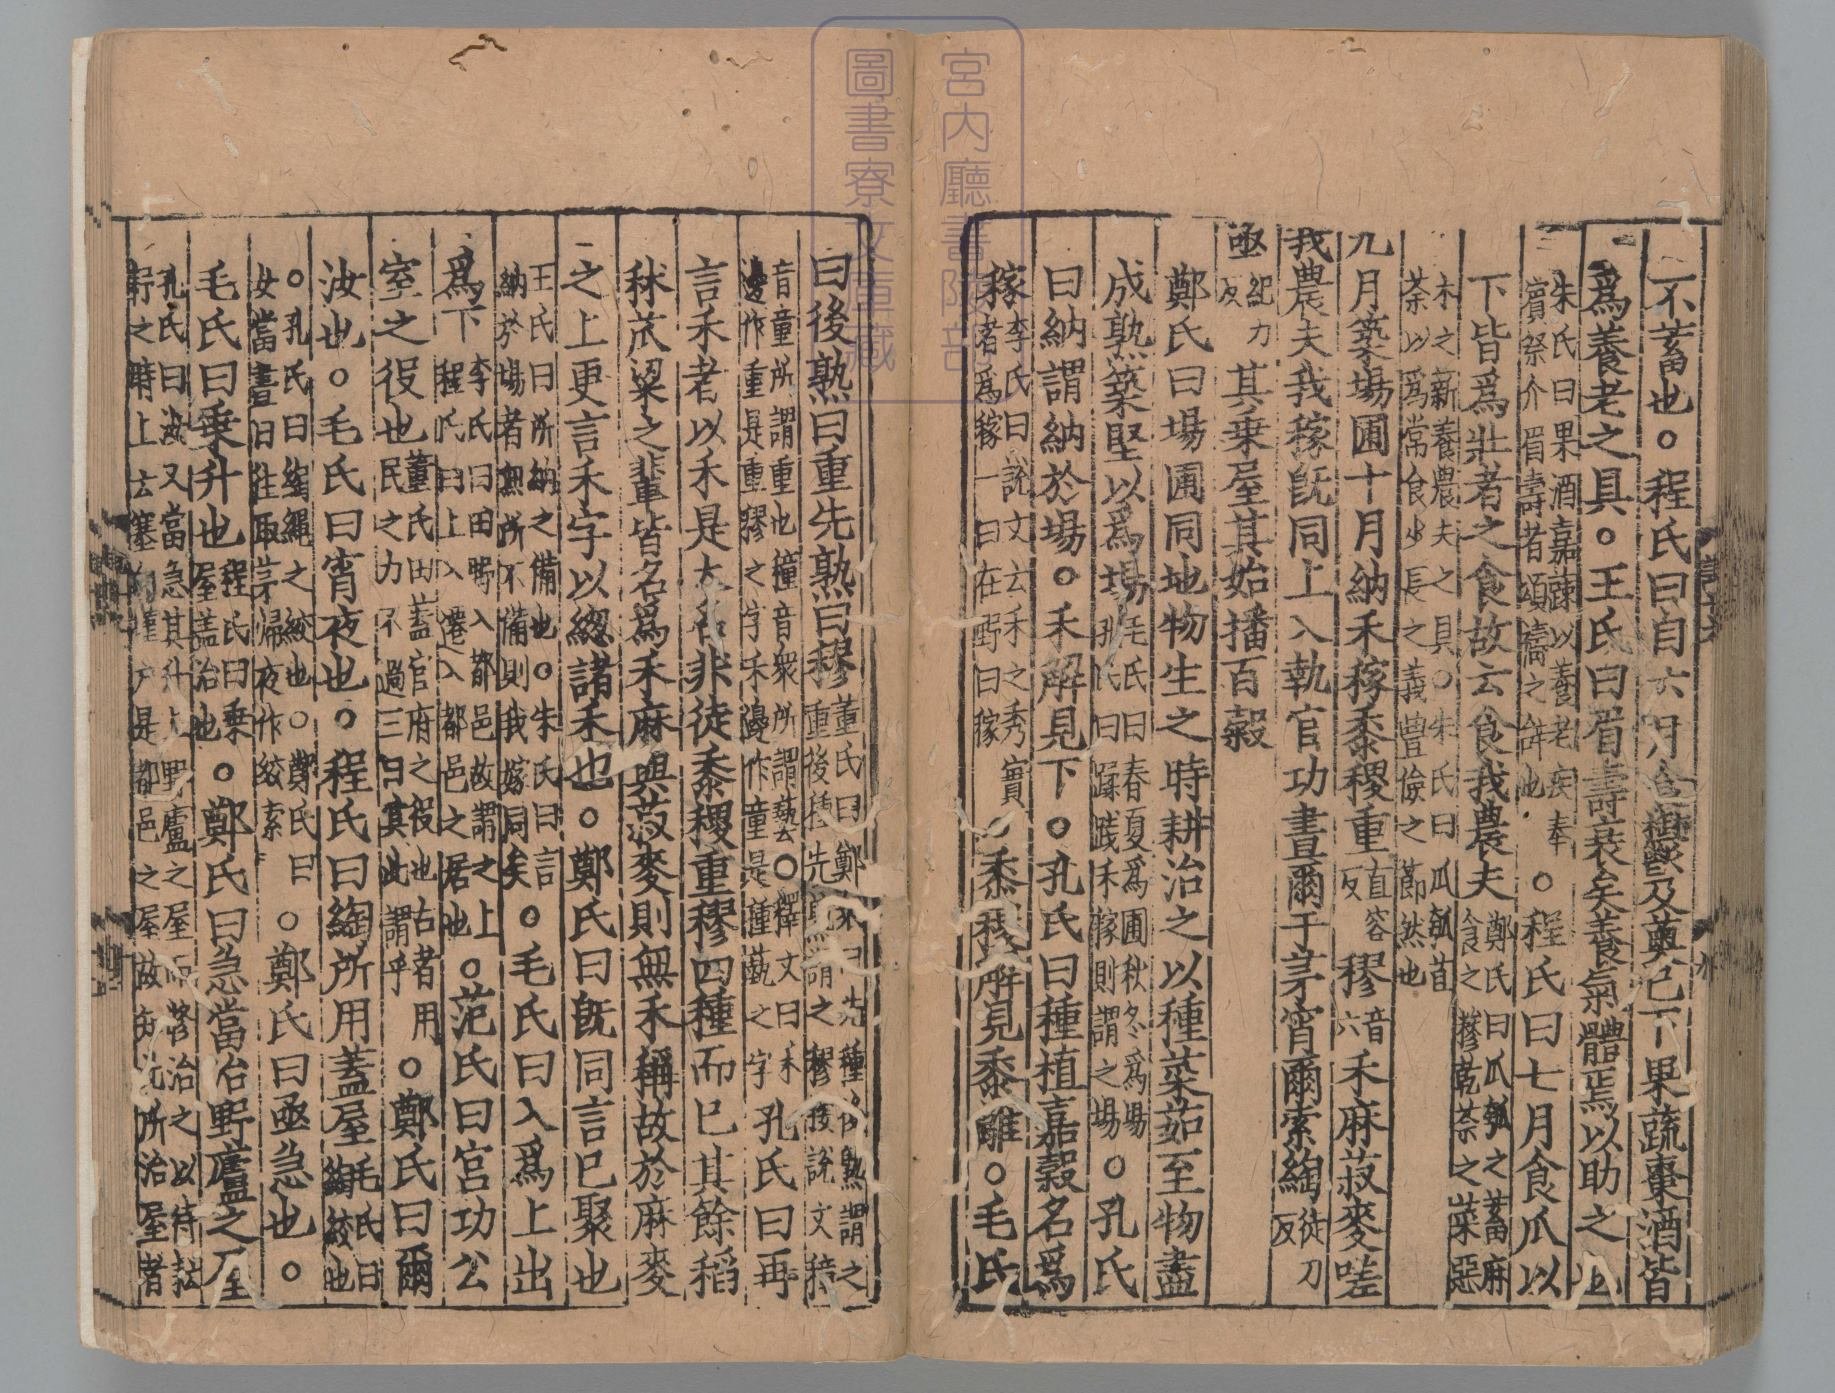 不蓄也○程氏曰自六月食鬱及薁已下果蔬棗酒皆
爲養老之具○王氏曰眉壽衰矣養氣體焉以助之也
朱氏曰果酒嘉蔬以養老疾奉賓祭介眉壽者頌禱之辭也○程氏曰七月食瓜以
下皆爲壯者之食故云食我農夫鄭氏曰瓜瓠之蓄麻食之糝乾荼之菜惡
木之薪養農夫之具○朱氏曰瓜瓠苴荼以爲常食少長之義豊儉之節然也
九月築場圃十月納禾稼黍稷重直容反穋音六禾麻菽麥嗟
我農夫我稼旣同上入執宮功晝爾于茅宵爾索綯徒刀反
亟紀力反其乗屋其始播百穀
鄭氏曰場圃同地物生之時耕治之以種菜茹至物盡
成熟築堅以爲場毛氏曰春夏爲圃秋冬爲場孔氏曰蹂踐禾稼則謂之場○孔氏
曰納謂納於場○禾解見下○孔氏曰種植嘉穀名爲
稼李氏曰說文云禾之秀實者爲稼一曰在野曰稼○黍稷解見黍離○毛氏
曰後熟曰重先熟曰穋董氏曰鄭眾曰先種後熟謂之重後種先熟謂之穋後說文稑
音童所謂重也穜音衆所謂藝○釋文曰禾邊作重是重穋之字禾邊作童是穜藝之字孔氏曰再
言禾者以禾是大名非徒黍稷重穋四種而已其餘稻
秫苽粱之輩皆名爲禾麻與菽麥則無禾稱故於麻麥
之上更言禾字以緫諸禾也○鄭氏曰旣同言已聚也
王氏曰所納之備也○朱氏曰言納於場者無所不備則我稼同矣○毛氏曰入爲上出
爲下李氏曰田野入都邑故謂之上程氏曰上入遷入都邑之居也○范氏曰宮功公
室之役也董氏曰蓋官府之役也古者用民之力不過三日其此謂乎○鄭氏曰爾
汝也○毛氏曰宵夜也○程氏曰綯所用蓋屋毛氏曰綯絞也
○孔氏曰綯繩之絞也○鄭氏曰女當晝日往取茅帰夜作絞索○鄭氏曰亟急也○
毛氏曰乗升也程氏曰乗屋蓋治也○鄭氏曰急當治野廬之屋
孔氏曰汝又當急其升上野廬之屋而脩治之以待耘耔之時上云塞向墐戶是都邑之屋故知此所治屋者